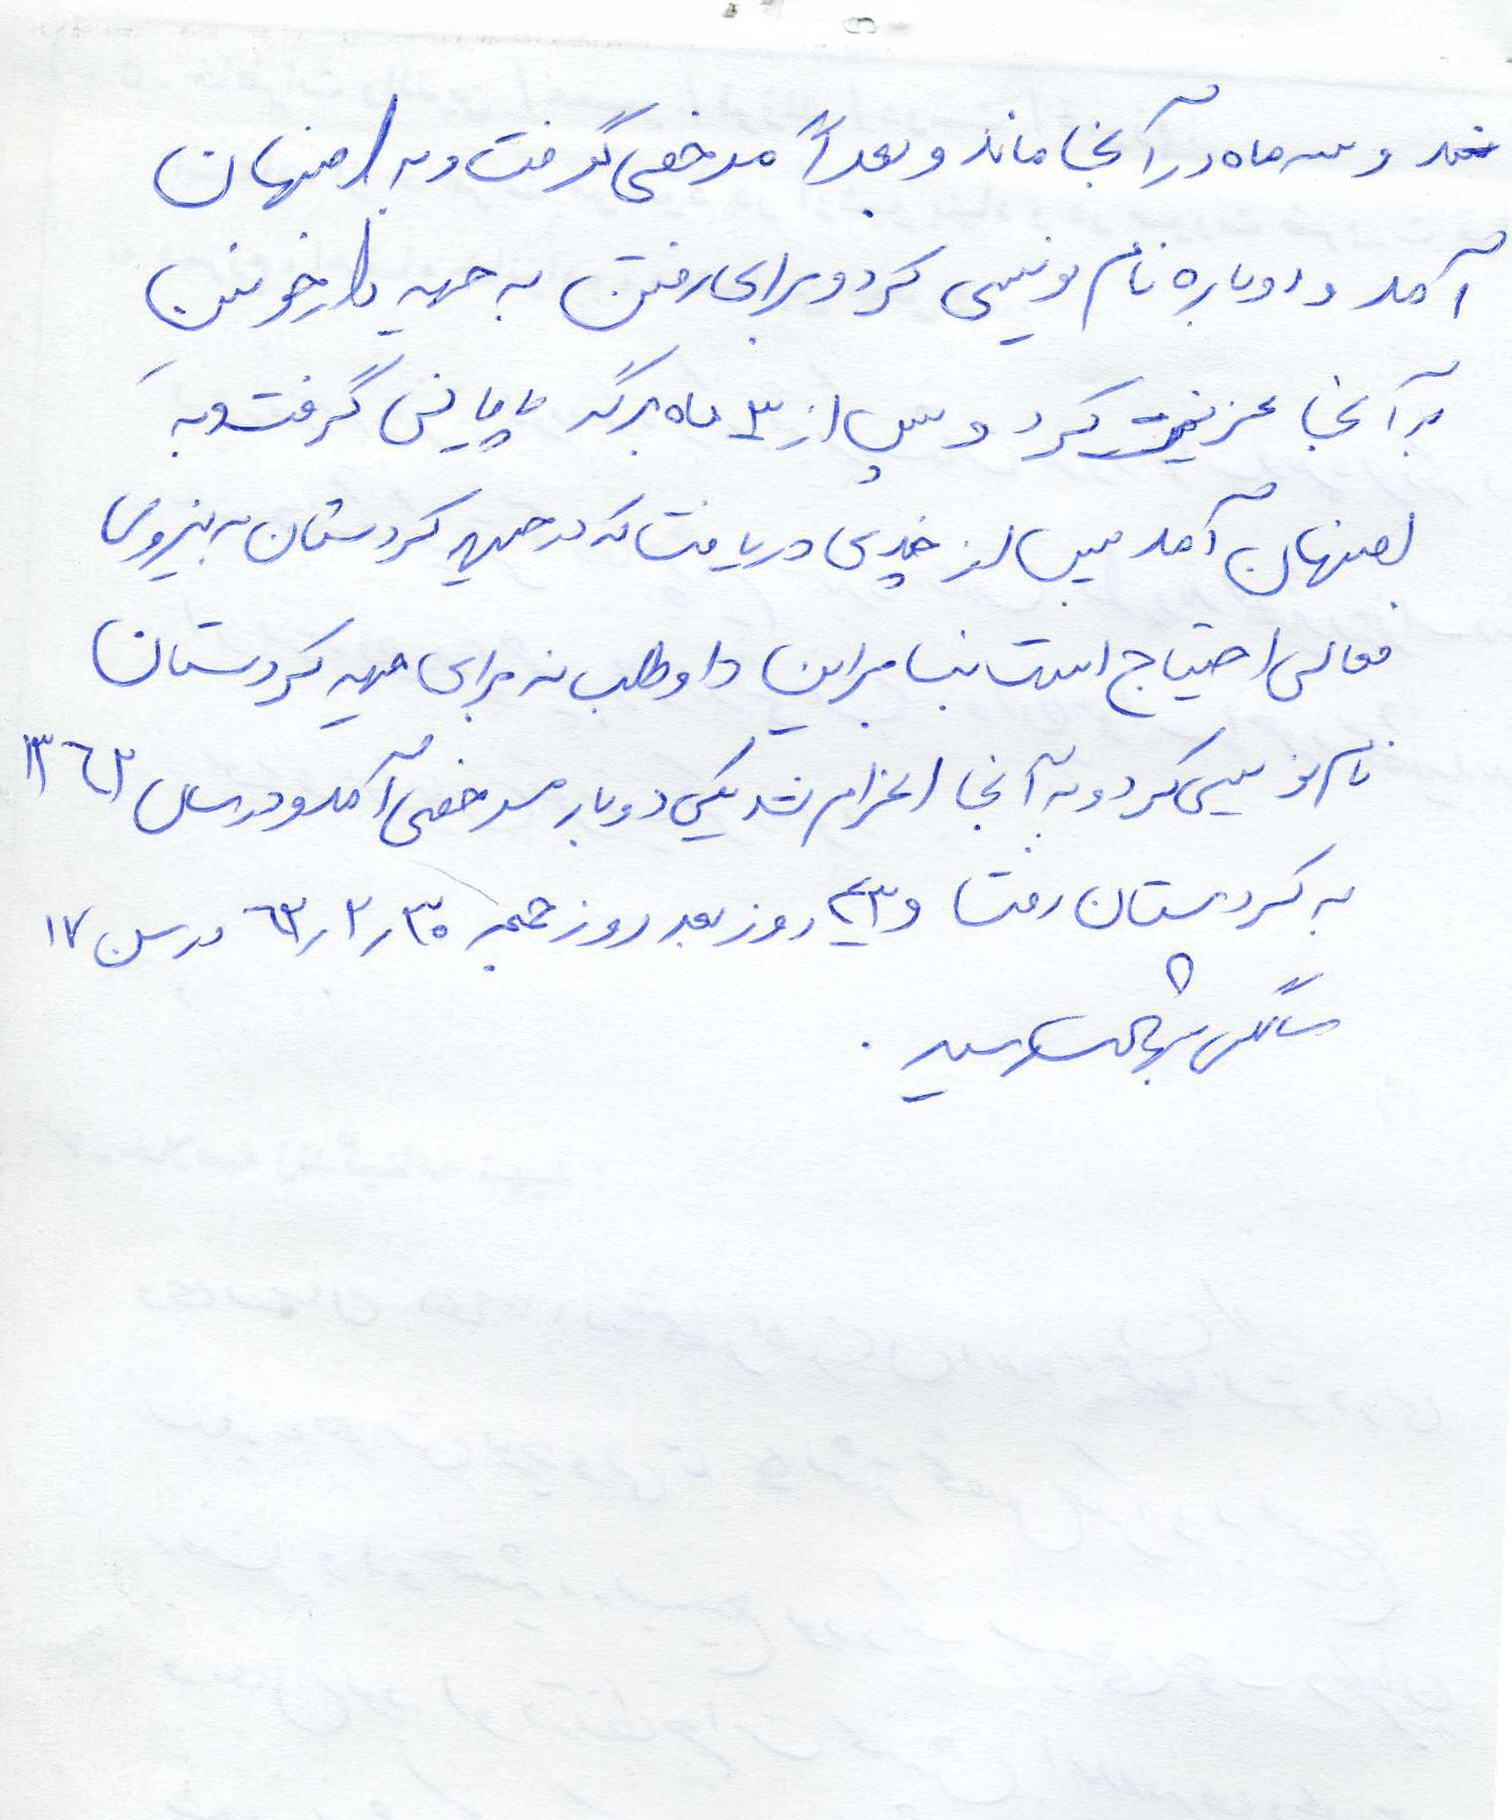 شد و سه ماه در آنجا ماند و بعداً مرخصی گرفت و به اصفهان
آمد و دوباره نام نویسی کرد و برای رفتن به جبهه دارخوئین
به آنجا عزیمت کرد و پس از ۳ ماه برگه پایانی گرفت و به
اصفهان آمد پس از چندی دریافت که در جبهه کردستان به نیروی
فعالی احتیاج است بنابراین داوطلبانه برای جبهه کردستان
نام نویسی کرد و به آنجا اعزام شد یکی دوبار مرخصی آمد و در سال ۱۳۶۳
به کردستان رفت و ۲۳ روز بعد روز جمعه ۶۳/۲/۳۰ در سن ۱۷
سالگی بشهادت رسید .